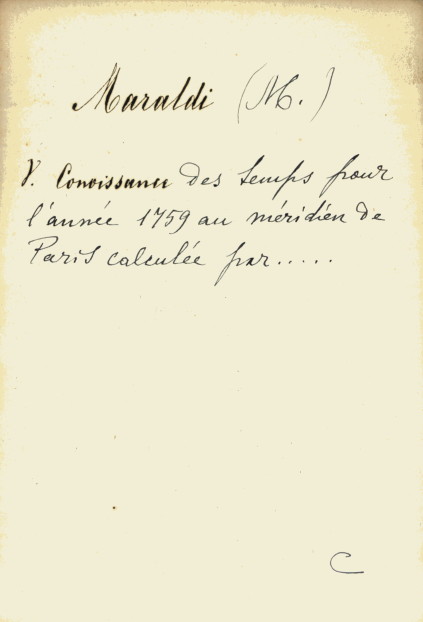 Maraldi (M.)
V. Conoissance des temps pour
l'année 1759 au méridien de
Paris calculée par.....
C